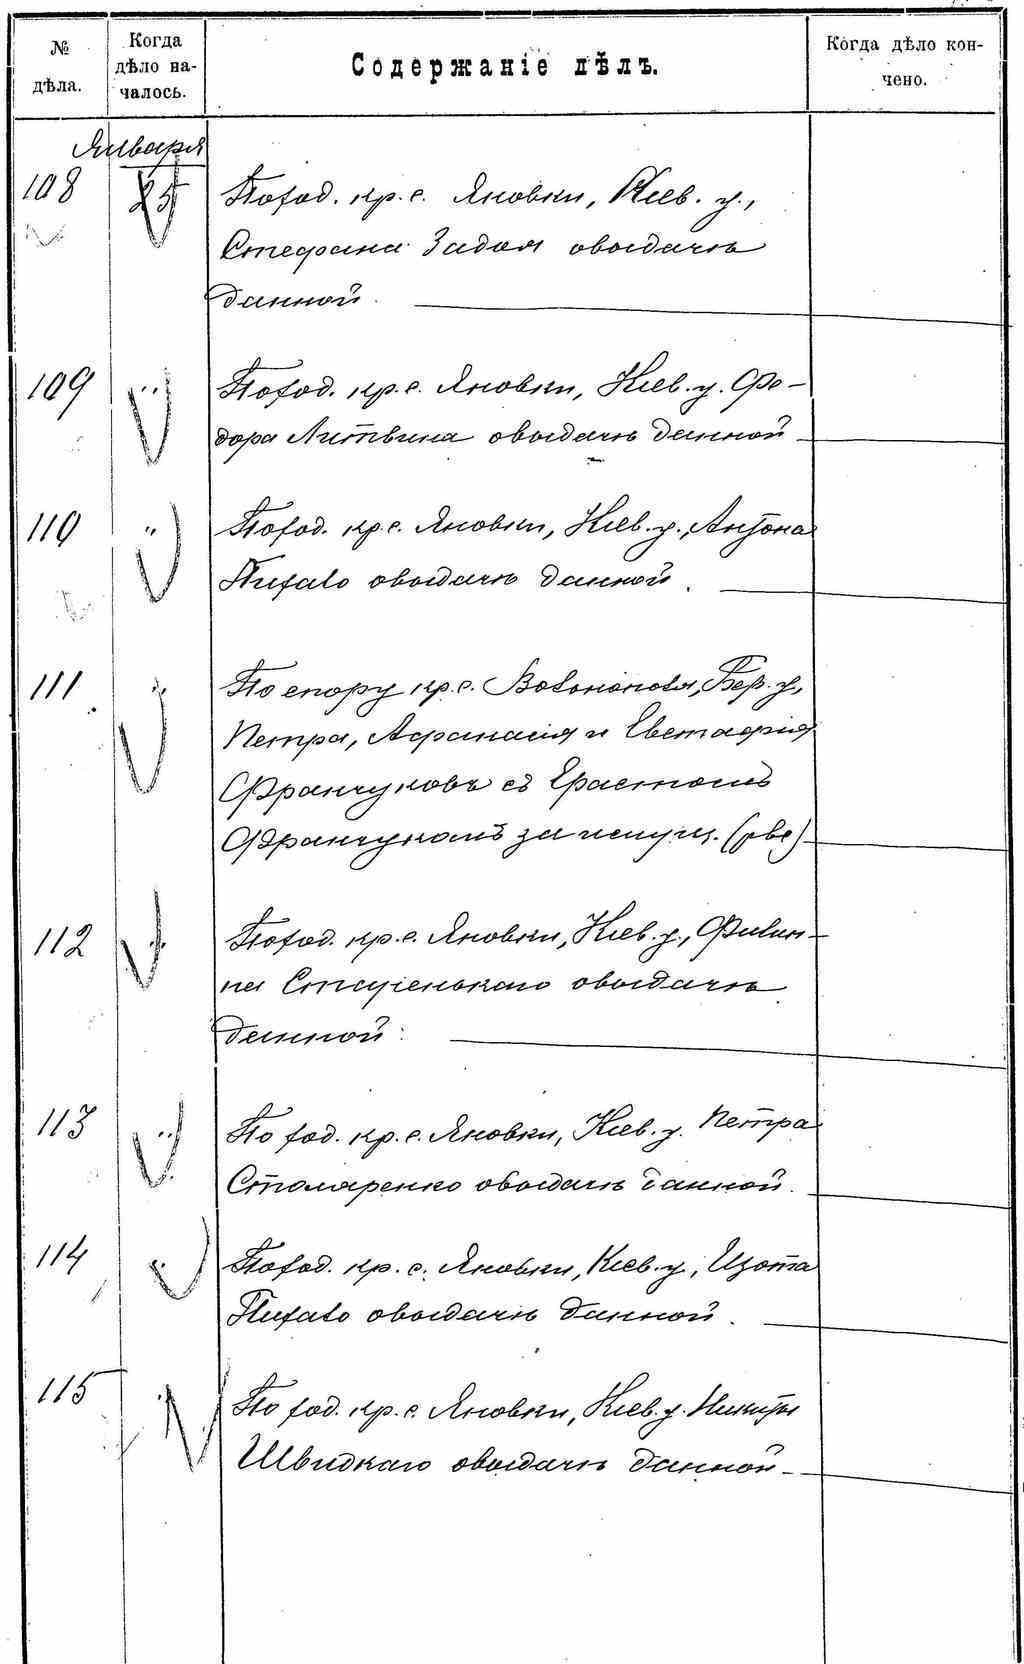 № дѣла.
Когда дѣло на-чалось.
Содержаніе дѣлъ.
Когда дѣло кон-чено.
Января
108 25 По ход. кр. с. Яновки, Кіев. у.,
Стефана Задоя о выдачѣ
данной.
109 " По ход. кр. с. Яновки, Кіев. у. Ѳе-
дора Литвина о выдачѣ данной
110 " По ход. кр. с. Яновки, Кіев. у., Антона
о выдачѣ данной.
111 " По спору кр. с. Бер. у.,
Петра, Афанасія и Евстафія
Франчуковъ съ Ерастомъ
Франчукомъ за имущ.
112 " По ход. кр. с. Яновки, Кіев. у., Филип-
па о выдачѣ
данной.
113 " По ход. кр. с. Яновки, Кіев. у. Петра
Столяренко о выдачѣ данной.
114 " По ход. кр. с. Яновки, Кіев. у., Изота
о выдачѣ данной.
115 " По ход. кр. с. Яновки, Кіев. у. Никиты
Швидкаго о выдачѣ данной